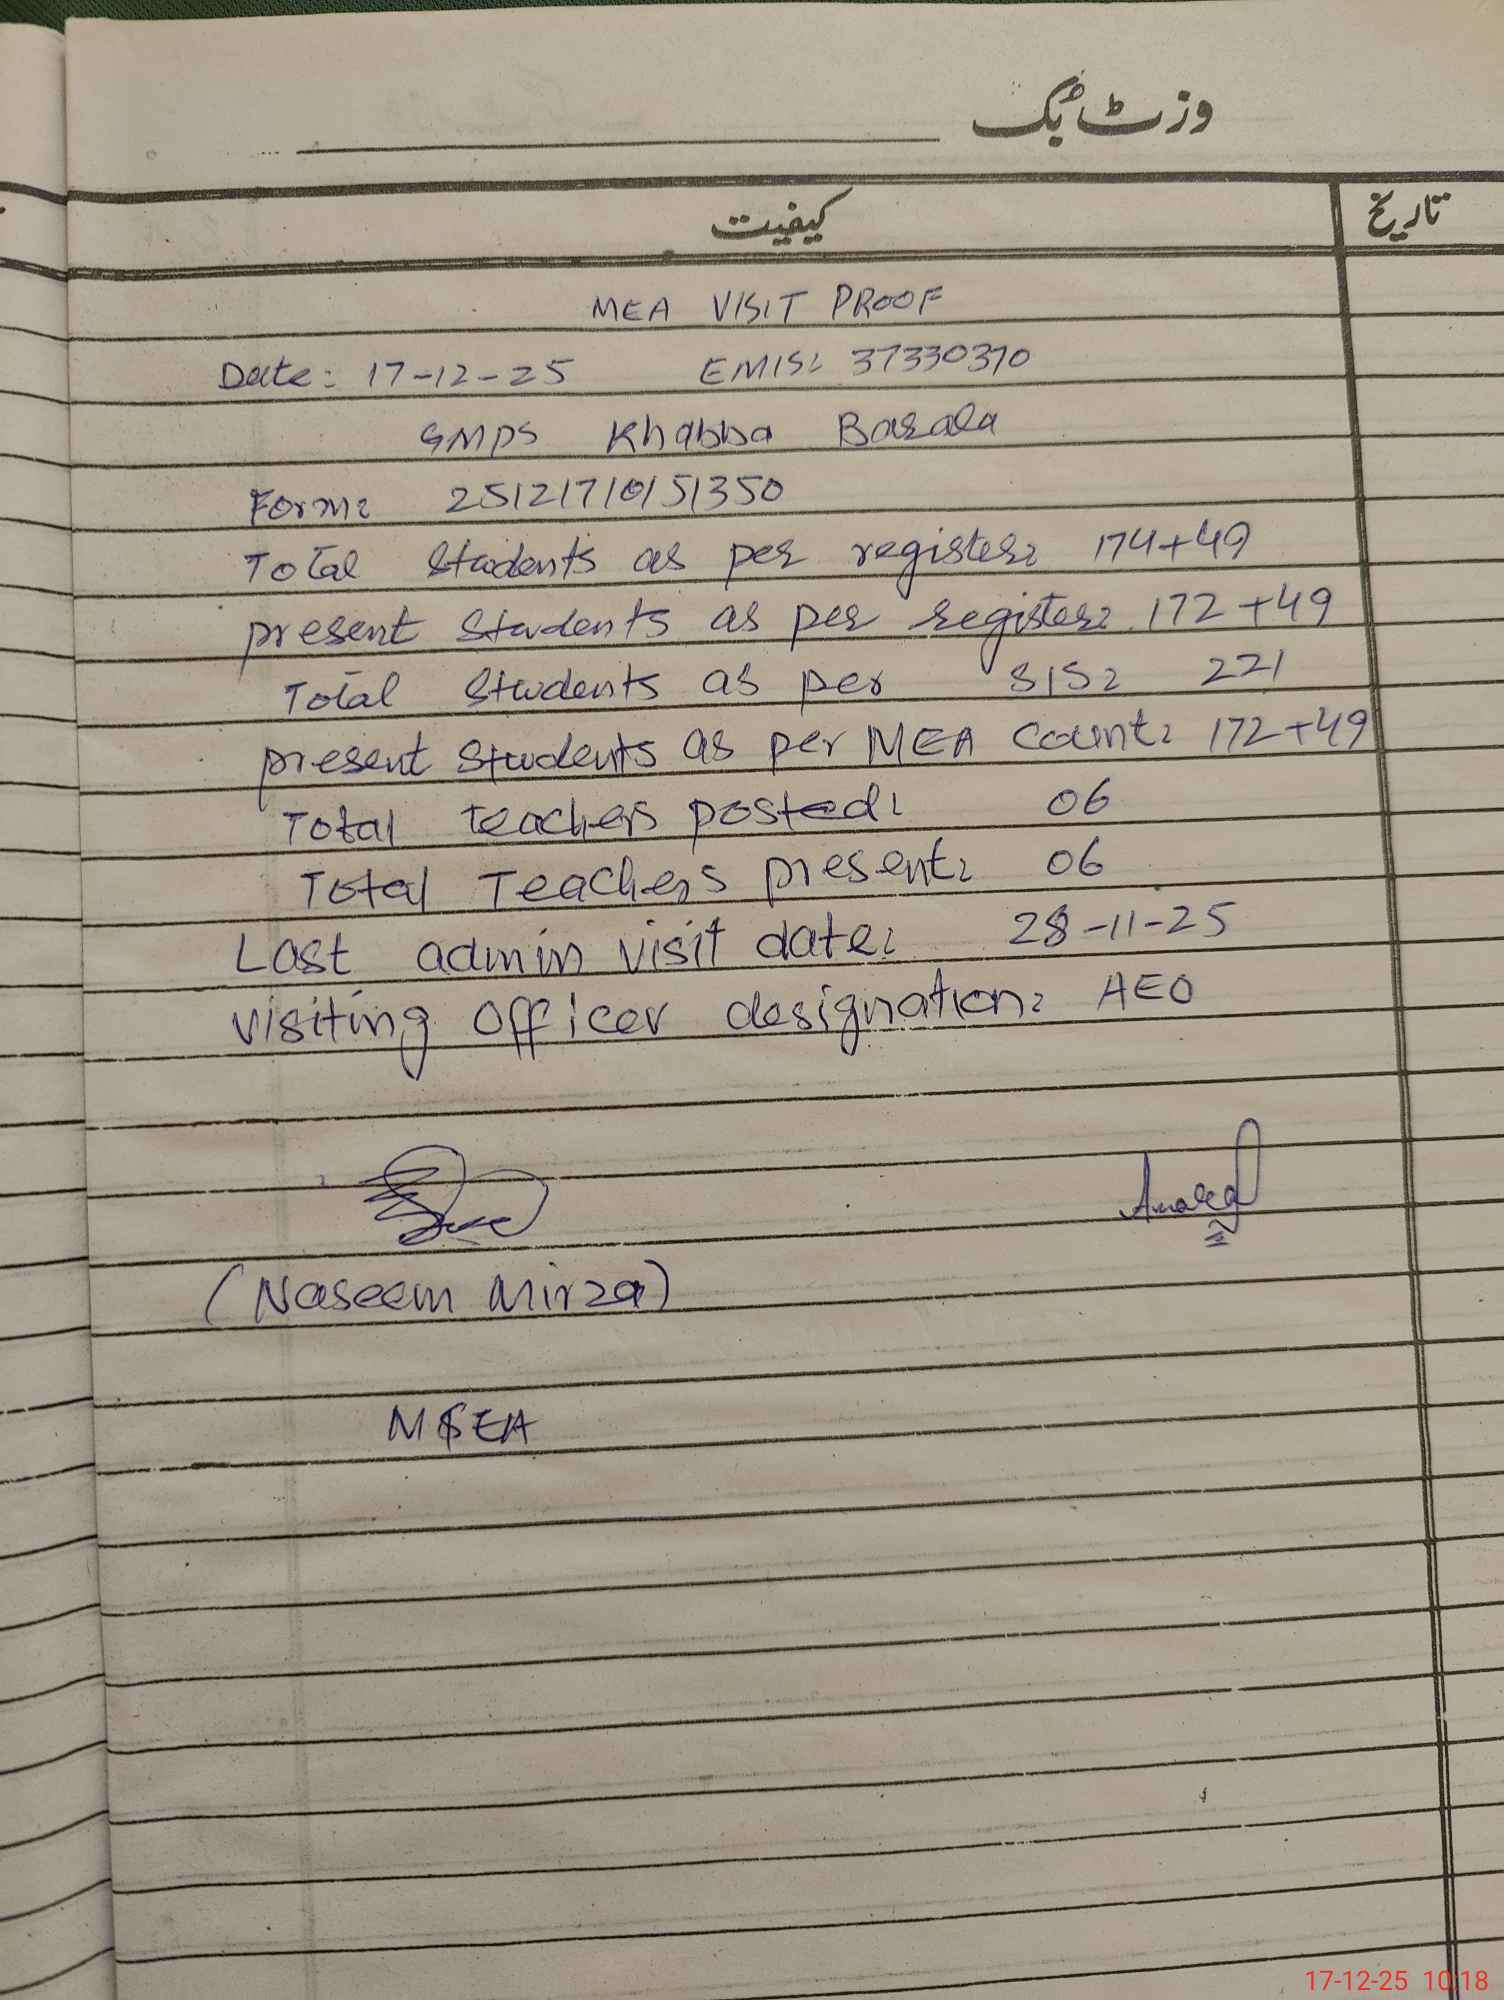 وزٹ بُک
کیفیت
تاریخ
MEA VISIT PROOF
Date: 17-12-25 EMIS: 37330370
GMPS Khabba Barala
Form: 25121710151350
Total Students as per register: 174+49
present Students as per register: 172+49
Total Students as per SIS: 221
present Students as per MEA Count: 172+49
Total teachers posted: 06
Total Teachers present: 06
Last admin visit date: 28-11-25
visiting officer designation: AEO
(Naseem Mirza)
MEA
17-12-25 10:18